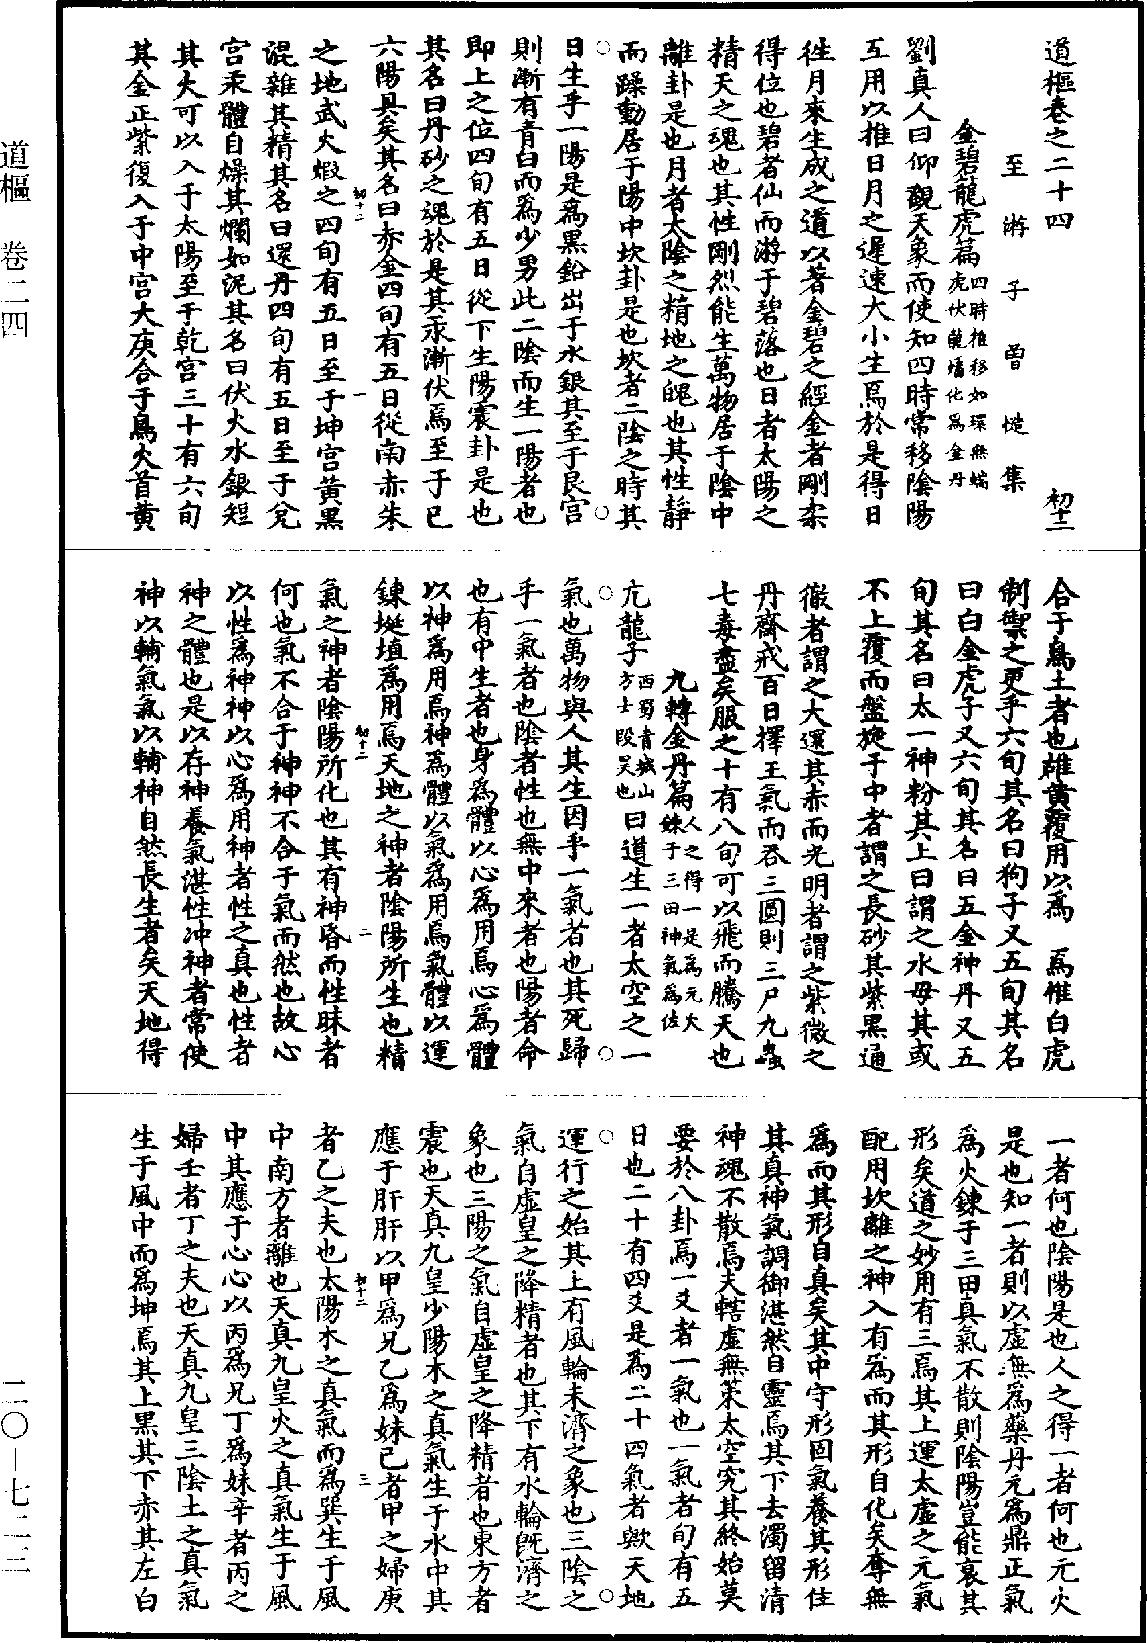 道樞卷之二十四　初十二
至游子曾慥集
金碧龍虎篇四時推移如環無端虎伏龍蟠化為金丹
劉真人曰仰觀天象而使知四時常移陰陽
互用以推日月之遲速大小生焉於是得日
徃月來生成之道以著金碧之經金者剛柔
得位也碧者仙而游于碧落也日者太陽之
精天之魂也其性剛烈能生萬物居于陰中
離卦是也月者太陰之精地之魄也其性靜
而蹂動居于陽中坎卦是也坎者二陰之時其
日生乎一陽是為黑鉛出于水銀其至于艮宮
則漸有青白而為少男此二陰而生一陽者也
即上之位四旬有五日從下生陽震卦是也
其名曰丹砂之魂於是其汞漸伏焉至于巳
六陽具矣其名曰赤金四旬有五日從南赤朱
初十二　一
之地武火煆之四旬有五日至于坤宮黃黑
混雜其精其名曰還丹四旬有五日至于兌
宮汞體自燥其爛如泥其名曰伏火水銀短
其火可以入于太陽至于乾宮三十有六旬
其金正紫復入于中宮大庚合于鳥火首黃
合于鳥土者也雄黃覆用以為　焉惟白虎
制禦之更乎六旬其名曰狗子又五旬其名
曰白金虎子又六旬其名曰五金神丹又五
旬其名曰太一神粉其上曰謂之水母其或
不上覆而盤旋于中者謂之長砂其紫黑通
徹者謂之大還其赤而光明者謂之紫微之
丹齋戒百日擇王氣而吞三圓則三尸九蟲
七毒盡矣服之十有八旬可以飛而騰天也
九轉金丹篇人之得一是為元火鍊于三田神氣為佐
亢龍子西蜀青城山方士段昊也曰道生一者太空之一
氣也萬物與人其生因乎一氣者也其死歸
乎一氣者也陰者性也無中來者也陽者命
也有中生者也身為體以心為用焉心為體
以神為用焉神為體以氣為用焉氣體以運
鍊埏埴為用焉天地之神者陰陽所生也精
初十二　二
氣之神者陰陽所化也其有神昏而性昧者
何也氣不合于神神不合于氣而然也故心
以性為神神以心為用神者性之真也性者
神之體也是以存神養氣湛性沖神者常使
神以輸氣氣以輸神自然長生者矣天地得
一者何也陰陽是也人之得一者何也元火
是也知一者則以虛無為藥丹元為鼎正氣
為火鍊于三田真氣不散則陰陽豈能哀其
形矣道之妙用有三焉其上運太虛之元氣
配用坎離之神入有為而其形自化矣奪無
為而其形自真矣其中守形固氣養其形住
其真神氣調御湛然自靈焉其下去濁留清
神魂不散焉夫轄虛無策太空究其終始莫
要於八卦焉一爻者一氣也一氣者旬有五
日也二十有四爻是為二十四氣者歟天地
運行之始其上有風輪未濟之象也三陰之
氣自虛皇之降精者也其下有水輪既濟之
象也三陽之氣自虛皇之降精者也東方者
震也天真九皇少陽木之真氣生于水中其
應于肝肝以甲為兄乙為妹己者甲之婦庚
初十二　三
者乙之夫也太陽木之真氣而為巽生于風
中南方者離也天真九皇火之真氣生于風
中其應于心心以丙為兄丁為妹辛者丙之
婦壬者丁之夫也天真九皇三陰土之真氣
生于風中而為坤焉其上黑其下赤其左白
道樞　卷二四　二〇—七二三